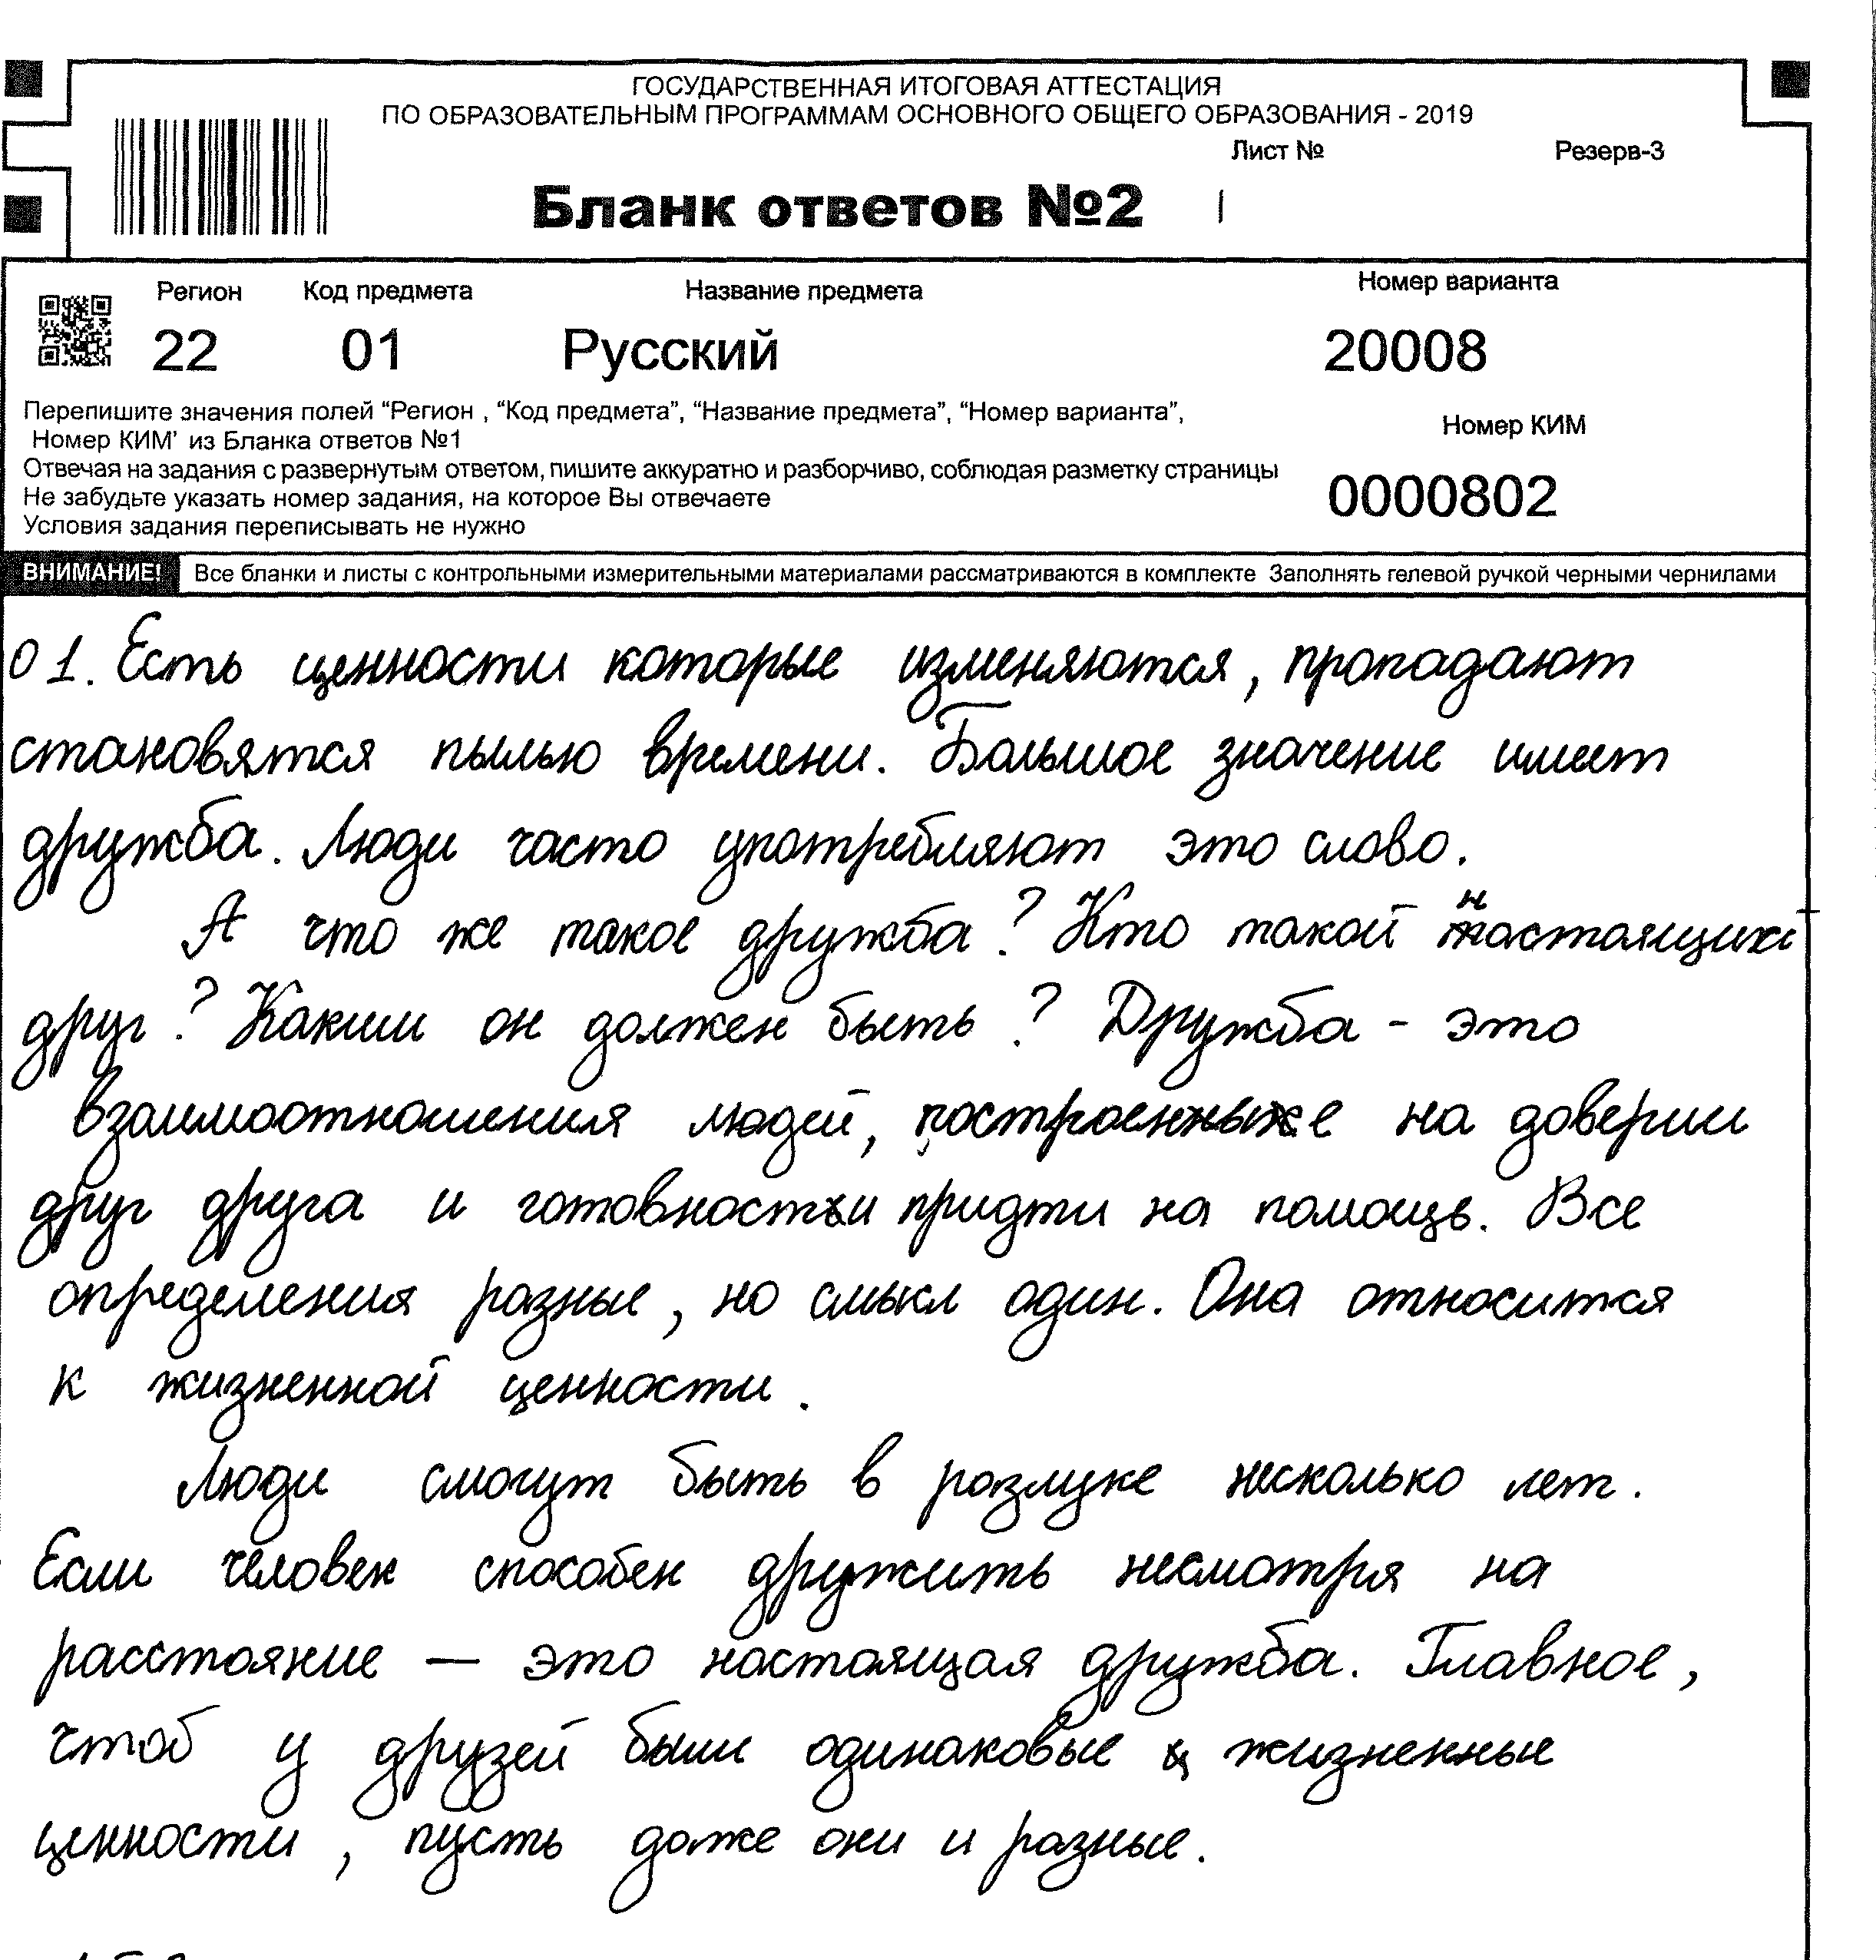 ГОСУДАРСТВЕННАЯ ИТОГОВАЯ АТТЕСТАЦИЯ
ПО ОБРАЗОВАТЕЛЬНЫМ ПРОГРАММАМ ОСНОВНОГО ОБЩЕГО ОБРАЗОВАНИЯ - 2019
Лист № Резерв-3
Бланк ответов №2 1
Регион Код предмета Название предмета Номер варианта
22 01 Русский 20008
Перепишите значения полей “Регион , “Код предмета”, “Название предмета”, “Номер варианта”,
Номер КИМ’ из Бланка ответов №1
Номер КИМ
Отвечая на задания с развернутым ответом, пишите аккуратно и разборчиво, соблюдая разметку страницы
Не забудьте указать номер задания, на которое Вы отвечаете
0000802
Условия задания переписывать не нужно
ВНИМАНИЕ! Все бланки и листы с контрольными измерительными материалами рассматриваются в комплекте Заполнять гелевой ручкой черными чернилами
01. Есть ценности которые изменяются, пропадают
становятся пылью времени. Большое значение имеет
дружба. Люди часто употребляют это слово.
А что же такое дружба? Кто такой настоящий
друг? Каким он должен быть? Дружба - это
взаимоотношения людей, построенные на доверии
друг друга и готовности придти на помощь. Все
определения разные, но смысл один. Она относится
к жизненной ценности.
Люди смогут быть в разлуке несколько лет.
Если человек способен дружить несмотря на
расстояние — это настоящая дружба. Главное,
чтоб у друзей были одинаковые жизненные
ценности, пусть даже они и разные.